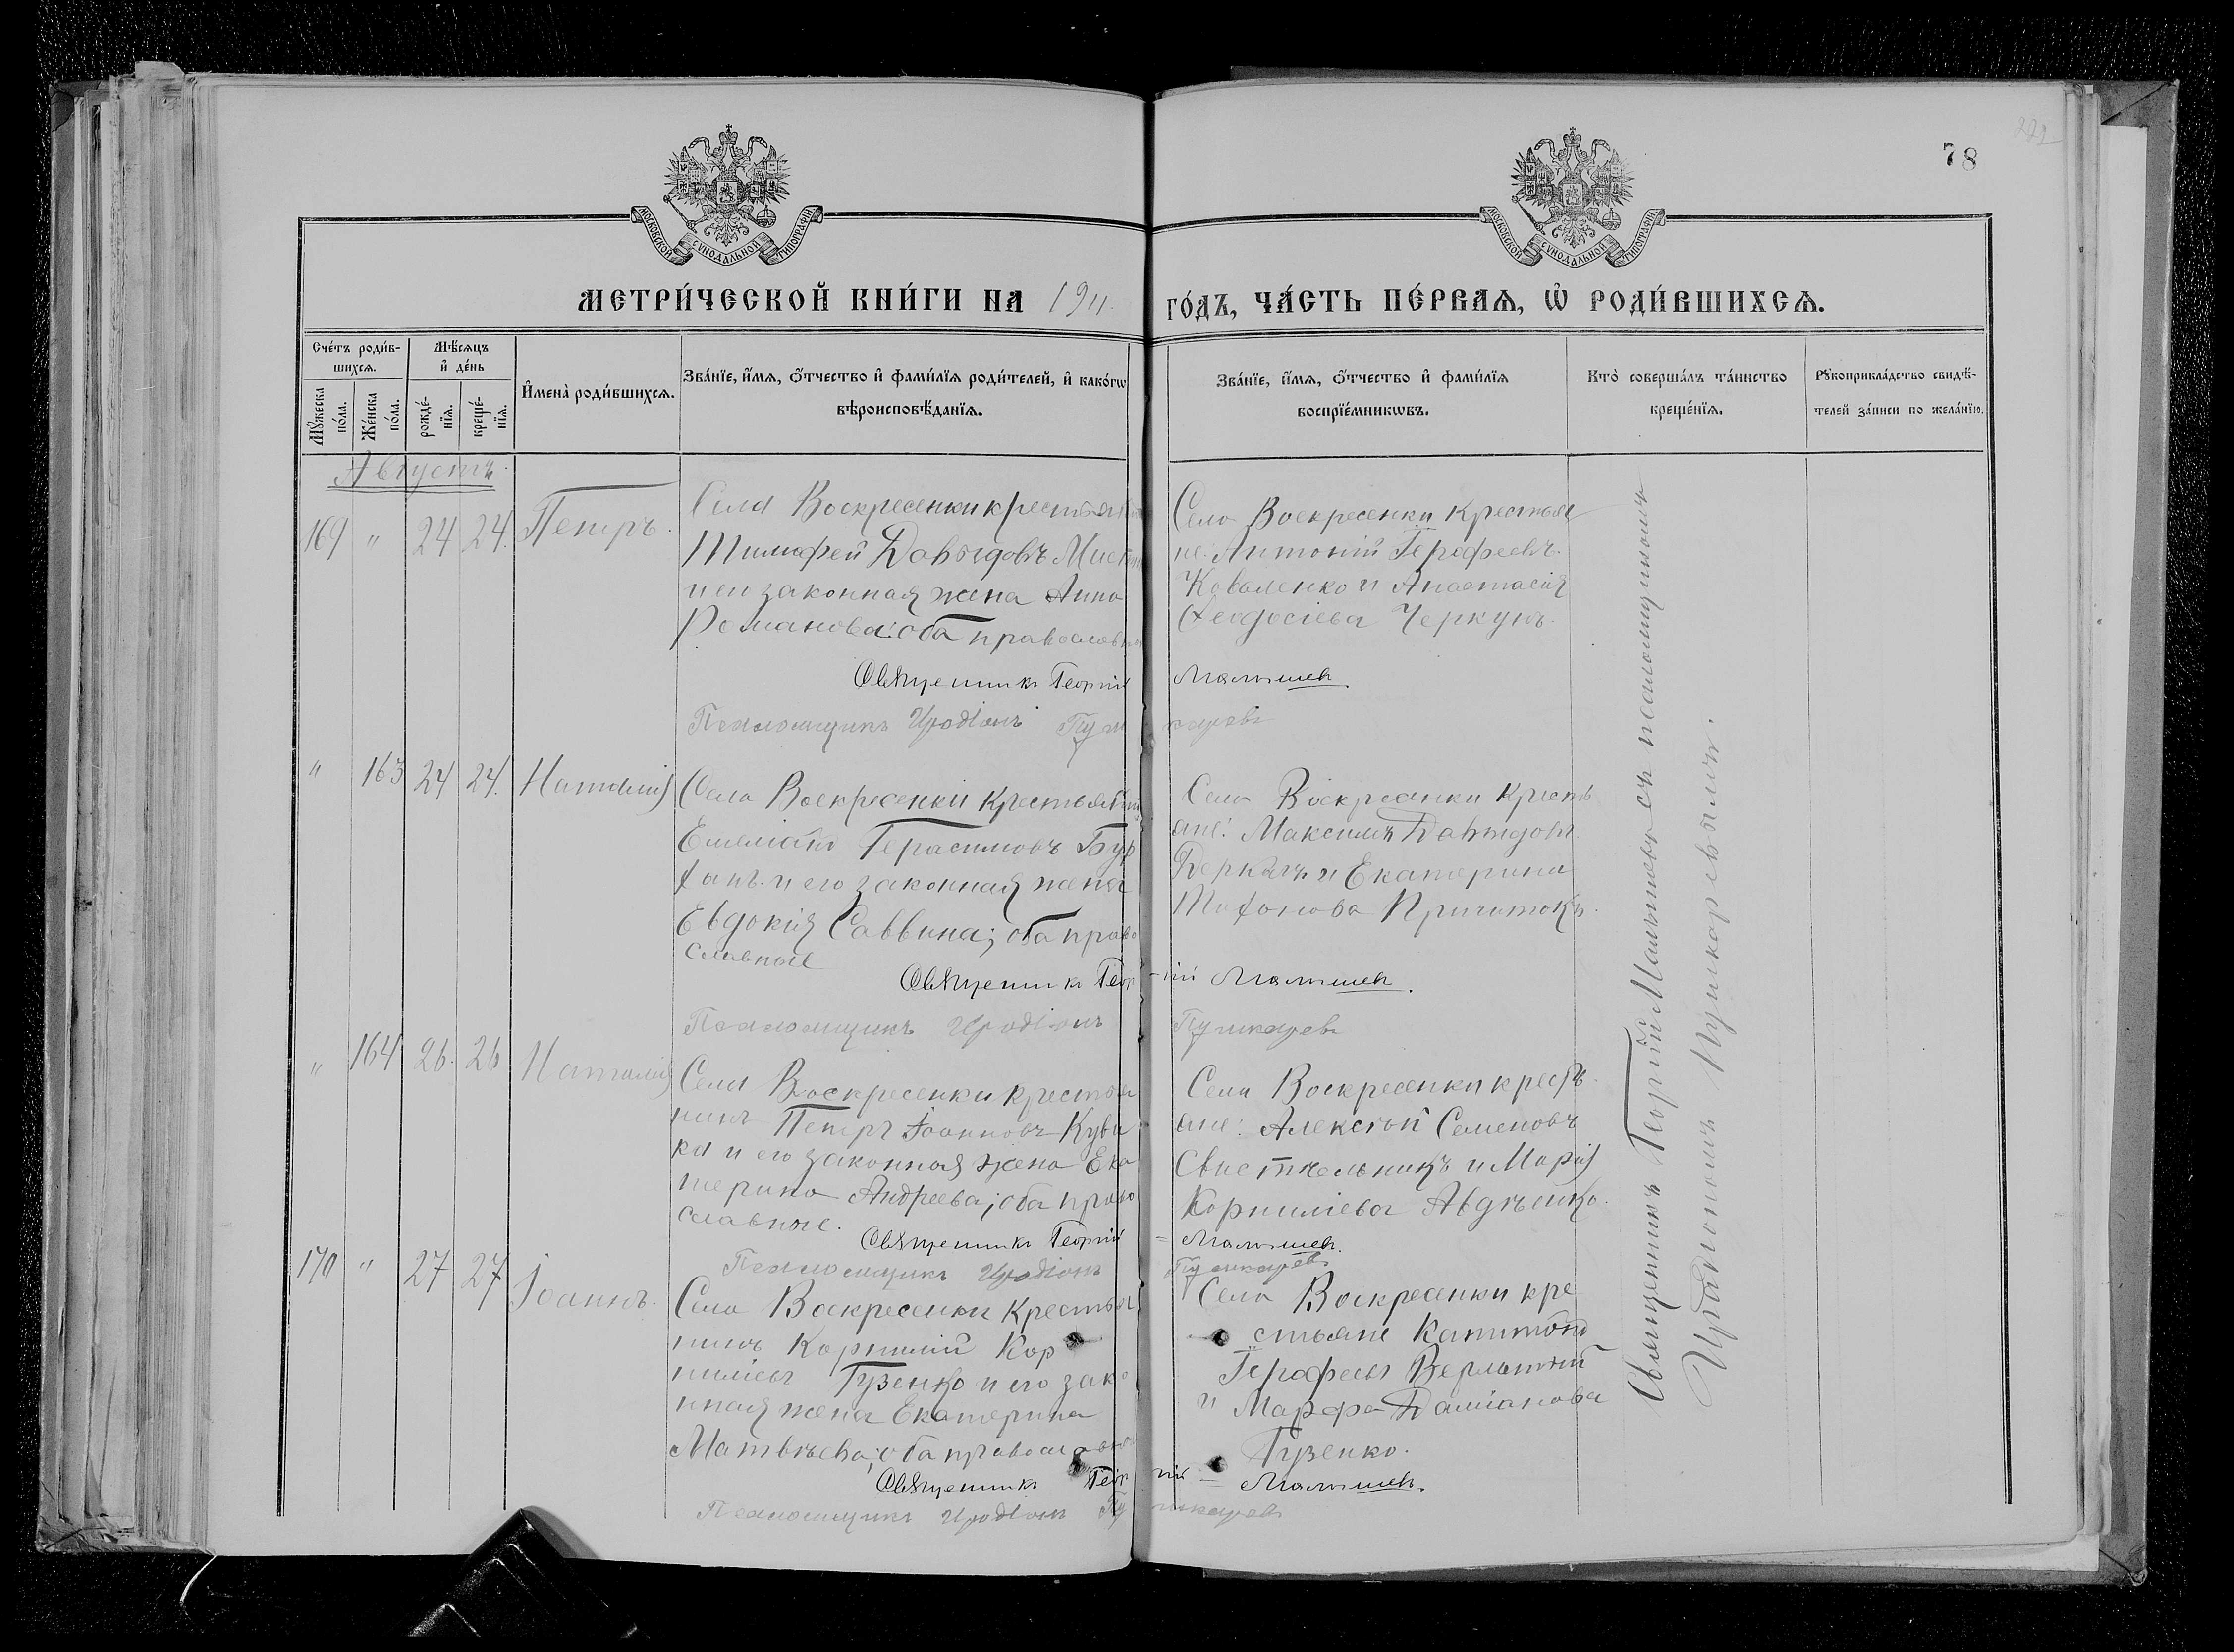 272
78
МОСКОВСКОЙ СУНОДАЛЬНОЙ ТИПОГРАФІИ
МОСКОВСКОЙ СУНОДАЛЬНОЙ ТИПОГРАФІИ
МЕТРИ́ЧЕСКОЙ КНИ́ГИ НА 1911. ГО́ДЪ, ЧА́СТЬ ПЕ́РВАѦ, Ѡ҆ РОДИ́ВШИХСѦ.
Сче́тъ роди́в-
шихсѧ.
Мѣ́сѧцъ
и҆ де́нь
Мꙋ́жеска по́ла.
Же́нска по́ла.
рожде́-нїѧ.
креще́-нїѧ.
И҆мена̀ роди́вшихсѧ.
Зва́нїе, и҆́мѧ, ѻ҆́тчество и҆ фами́лїѧ роди́телей, и҆ како́гѡ
вѣроисповѣ́данїѧ.
Зва́нїе, и҆́мѧ, ѻ҆́тчество и҆ фами́лїѧ
воспрїе́мникѡвъ.
Кто̀ соверша́лъ та́инство
креще́нїѧ.
Рꙋкоприкла́дство свидѣ́-
телей за́писи по жела́нїю.
Августъ.
169 " 24 24. Петръ.
Села Воскресенки крестьян
Тимофей Давыдовъ
и его законная жена Анна
Романова: оба православн
Села Воскресенки крестья
не: Антоній Іерофеевъ.
Коваленко и Анастасія
Феодосіева Черкунъ.
Священникъ Георгій Малышевъ
Псаломщикъ Иродіонъ Пушкаревъ
" 163 24 24. Наталія
Села Воскресенки крестьянин
Емеліанъ Герасимовъ Бур
и его законная жена
Евдокія Саввина; оба право
славные
Села Воскресенки кресть
яне: Максимъ Давыдовъ
Деркачъ и Екатерина
Священникъ Георгій Малышевъ.
Псаломщикъ Иродіонъ Пушкаревъ
" 164 26. 26 Наталія
Села Воскресенки крестья
нинъ Петръ Іоанновъ Куви
ка и его законная жена Ека
терина Андреева; оба право
славные.
Села Воскресенки кресть
яне: Алексѣй Семеновъ
и Марія
Корниліева Авдѣенко.
Священникъ Георгій = Малышевъ.
Псаломщикъ Иродіонъ Пушкаревъ
170 " 27 27 Іоаннъ.
Села Воскресенки крестья
нинъ Корнилій Кор
ниліевъ Гузенко и его зако
нная жена Екатерина
Матвѣева; оба православн
Села Воскресенки кре
стьяне Капитонъ
Іерофеевъ
и Марфа Даміанова
Гузенко.
Священникъ Георгій = Малышевъ.
Псаломщикъ Иродіонъ Пушкаревъ
Священникъ Георгій Малышевъ съ псаломщикомъ
Иродіономъ Пушкаревымъ.